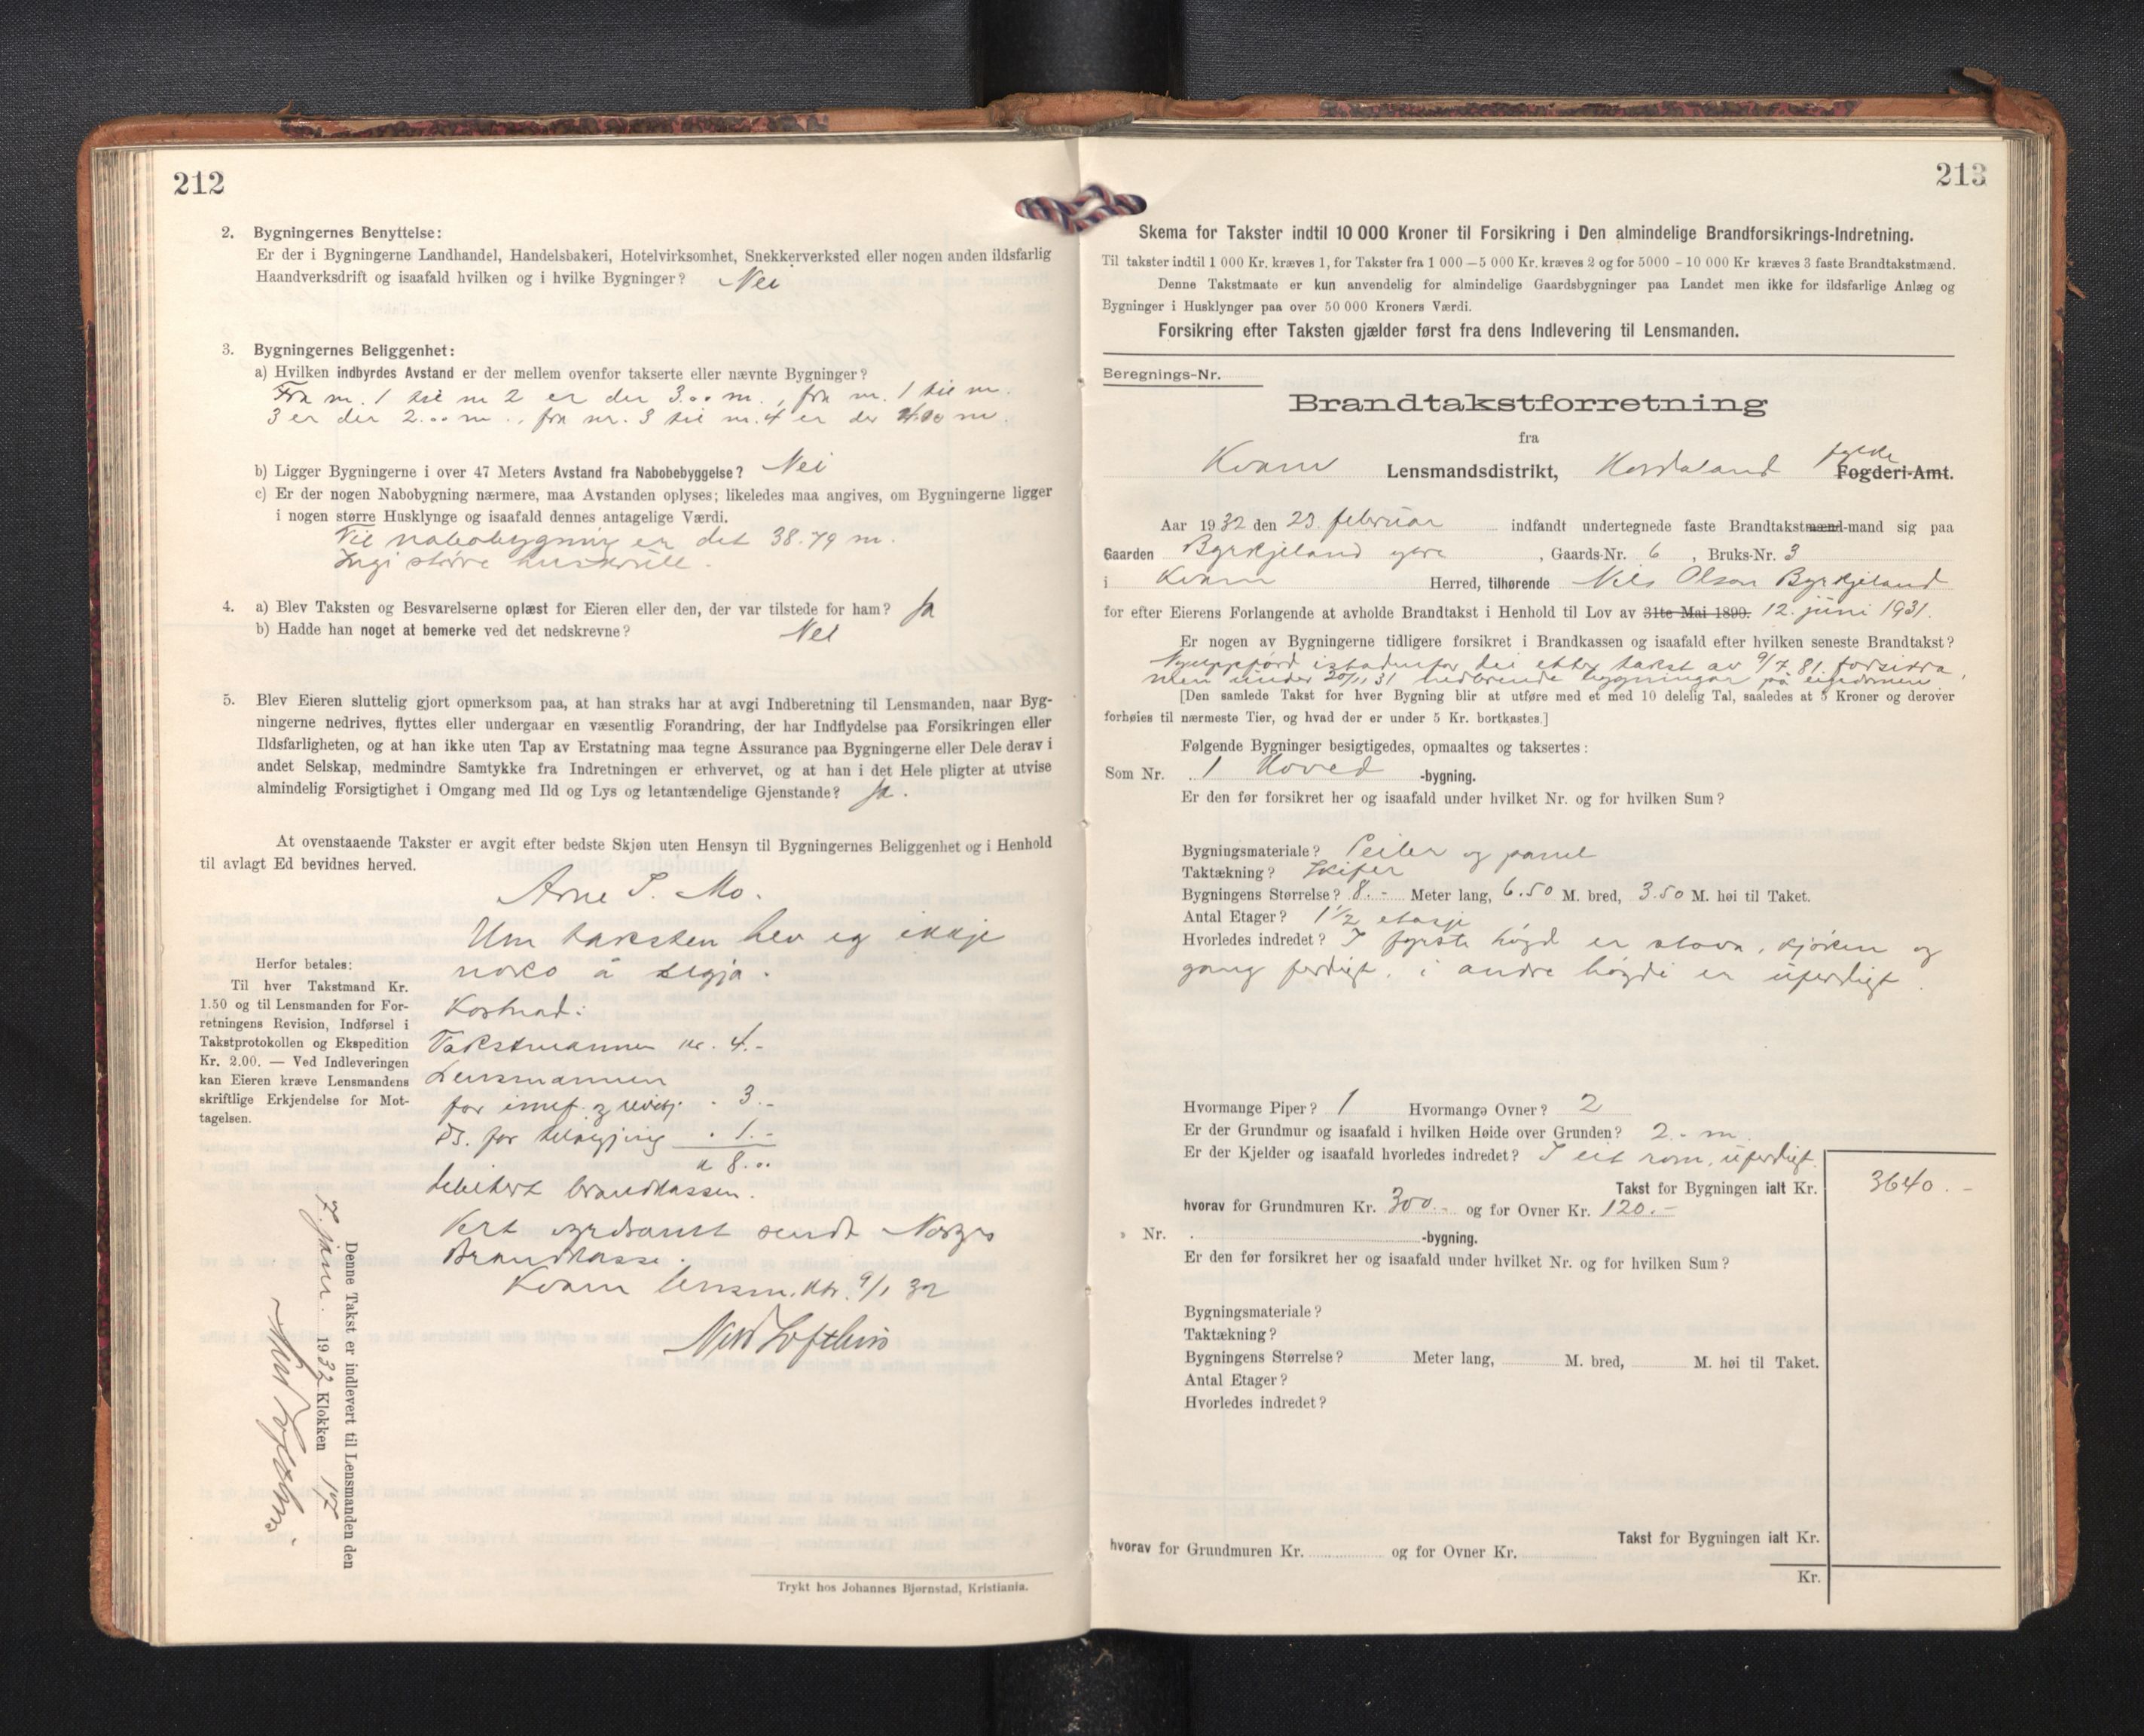 212
2. Bygningernes Benyttelse:
Er der i Bygningerne Landhandel, Handelsbakeri, Hotelvirksomhet, Snekkerverksted eller nogen anden ildsfarlig
Haandverksdrift og isaafald hvilken og i hvilke Bygninger? Nei
3. Bygningernes Beliggenhet:
a) Hvilken indbyrdes Avstand er der mellem ovenfor takserte eller nævnte Bygninger?
Fra nr. 1 til nr 2 er der 3.00 m., fra nr. 1 til nr.
3 er der 2.00 m., fra nr. 3 til nr. 4 er der 4.00 m.
b) Ligger Bygningerne i over 47 Meters Avstand fra Nabobebyggelse? Nei
c) Er der nogen Nabobygning nærmere, maa Avstanden oplyses; likeledes maa angives, om Bygningerne ligger
i nogen større Husklynge og isaafald dennes antagelige Værdi.
Til nabobygning er det 38.79 m.
Ingi større
4. a) Blev Taksten og Besvarelserne oplæst for Eieren eller den, der var tilstede for ham? Ja
b) Hadde han noget at bemerke ved det nedskrevne? Nei
5. Blev Eieren sluttelig gjort opmerksom paa, at han straks har at avgi Indberetning til Lensmanden, naar Byg-
ningerne nedrives, flyttes eller undergaar en væsentlig Forandring, der har Indflydelse paa Forsikringen eller
Ildsfarligheten, og at han ikke uten Tap av Erstatning maa tegne Assurance paa Bygningerne eller Dele derav i
andet Selskap, medmindre Samtykke fra Indretningen er erhvervet, og at han i det Hele pligter at utvise
almindelig Forsigtighet i Omgang med Ild og Lys og letantændelige Gjenstande? Ja.
At ovenstaaende Takster er avgit efter bedste Skjøn uten Hensyn til Bygningernes Beliggenhet og i Henhold
til avlagt Ed bevidnes herved.
Arne S. Mo.
Um taksten hev eg ikkje
noko å segja.
Herfor betales:
Til hver Takstmand Kr.
1.50 og til Lensmanden for For-
retningens Revision, Indførsel i
Takstprotokollen og Ekspedition
Kr. 2.00. — Ved Indleveringen
kan Eieren kræve Lensmandens
skriftlige Erkjendelse for Mot-
tagelsen.
Kostnad:
Takstmannen kr. 4.-
Lensmannen
for innf. og revisj. - 3.-
Ds. for utrekning - 1.-
kr 8.00
debitert brandkassen.
Vert sendt Norges
Brandkasse.
Kvam lensm.ktr. 9/1 32
Nils Lofthus
Denne Takst er indlevert til Lensmanden den
7 jan. 1932 Klokken 17
Nils Lofthus.
Trykt hos Johannes Bjørnstad, Kristiania.
213
Skema for Takster indtil 10 000 Kroner til Forsikring i Den almindelige Brandforsikrings-Indretning.
Til takster indtil 1 000 Kr. kræves 1, for Takster fra 1 000 — 5 000 Kr. kræves 2 og for 5000 - 10 000 Kr kræves 3 faste Brandtakstmænd.
Denne Takstmaate er kun anvendelig for almindelige Gaardsbygninger paa Landet men ikke for ildsfarlige Anlæg og
Bygninger i Husklynger paa over 50 000 Kroners Værdi.
Forsikring efter Taksten gjælder først fra dens Indlevering til Lensmanden.
Beregnings-Nr.
Brandtakstforretning
fra
Kvam Lensmandsdistrikt, Hordaland fylke Fogderi-Amt.
Aar 1932 den 23. februar indfandt undertegnede faste Brandtakstmænd-mand sig paa
Gaarden Byrkjeland ytre, Gaards-Nr. 6, Bruks-Nr. 3
i Kvam Herred, tilhørende Nils Olson Byrkjeland
for efter Eierens Forlangende at avholde Brandtakst i Henhold til Lov av 31te Mai 1899. 12. juni 1931.
Er nogen av Bygningerne tidligere forsikret i Brandkassen og isaafald efter hvilken seneste Brandtakst?
Nyuppførd istadenfor dei etter takst av 9/7 81. forsikra
men under 20/11 31 nedbrende bygningar på eigedomen.
[Den samlede Takst for hver Bygning blir at utføre med et med 10 delelig Tal, saaledes at 5 Kroner og derover
forhøies til nærmeste Tier, og hvad der er under 5 Kr. bortkastes.]
Følgende Bygninger besigtigedes, opmaaltes og taksertes:
Som Nr. 1 Hoved -bygning.
Er den før forsikret her og isaafald under hvilket Nr. og for hvilken Sum?
Bygningsmateriale? Peiler og panel
Taktækning? Skifer
Bygningens Størrelse? 8.- Meter lang, 6.50 M. bred, 3.50 M. høi til Taket.
Antal Etager? 1 1/2 etasje
Hvorledes indredet? I fyrste høgd er stova, kjøken og
gang ferdigt, i andre høgdi er uferdigt.
Hvormange Piper? 1 Hvormange Ovner? 2
Er der Grundmur og isaafald i hvilken Høide over Grunden? 2.- m.
Er der Kjelder og isaafald hvorledes indredet? I eit rom, uferdigt.
Takst for Bygningen ialt Kr. 3640.-
hvorav for Grundmuren Kr. 300.- og for Ovner Kr. 120.-
» Nr. -bygning.
Er den før forsikret her og isaafald under hvilket Nr. og for hvilken Sum?
Bygningsmateriale?
Taktækning?
Bygningens Størrelse? Meter lang, M. bred, M. høi til Taket.
Antal Etager?
Hvorledes indredet?
Takst for Bygningen ialt Kr.
hvorav for Grundmuren Kr. og for Ovner Kr.
Kr.